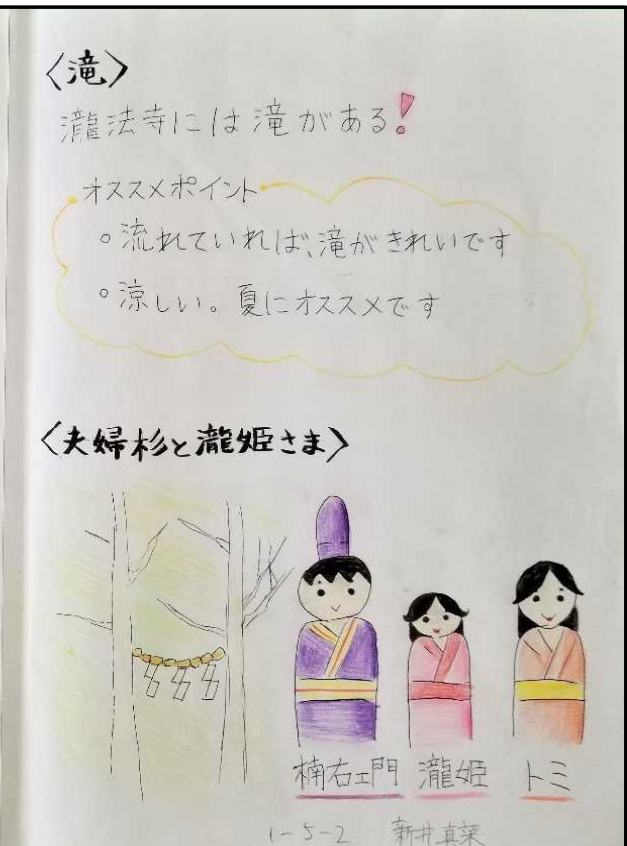 〈滝〉
瀧法寺には滝がある!
オススメポイント
○流れていれば、滝がきれいです
○涼しい。夏にオススメです
〈夫婦杉と瀧姫さま〉
楠右ェ門 瀧姫 トミ
1-5-2 新井真菜